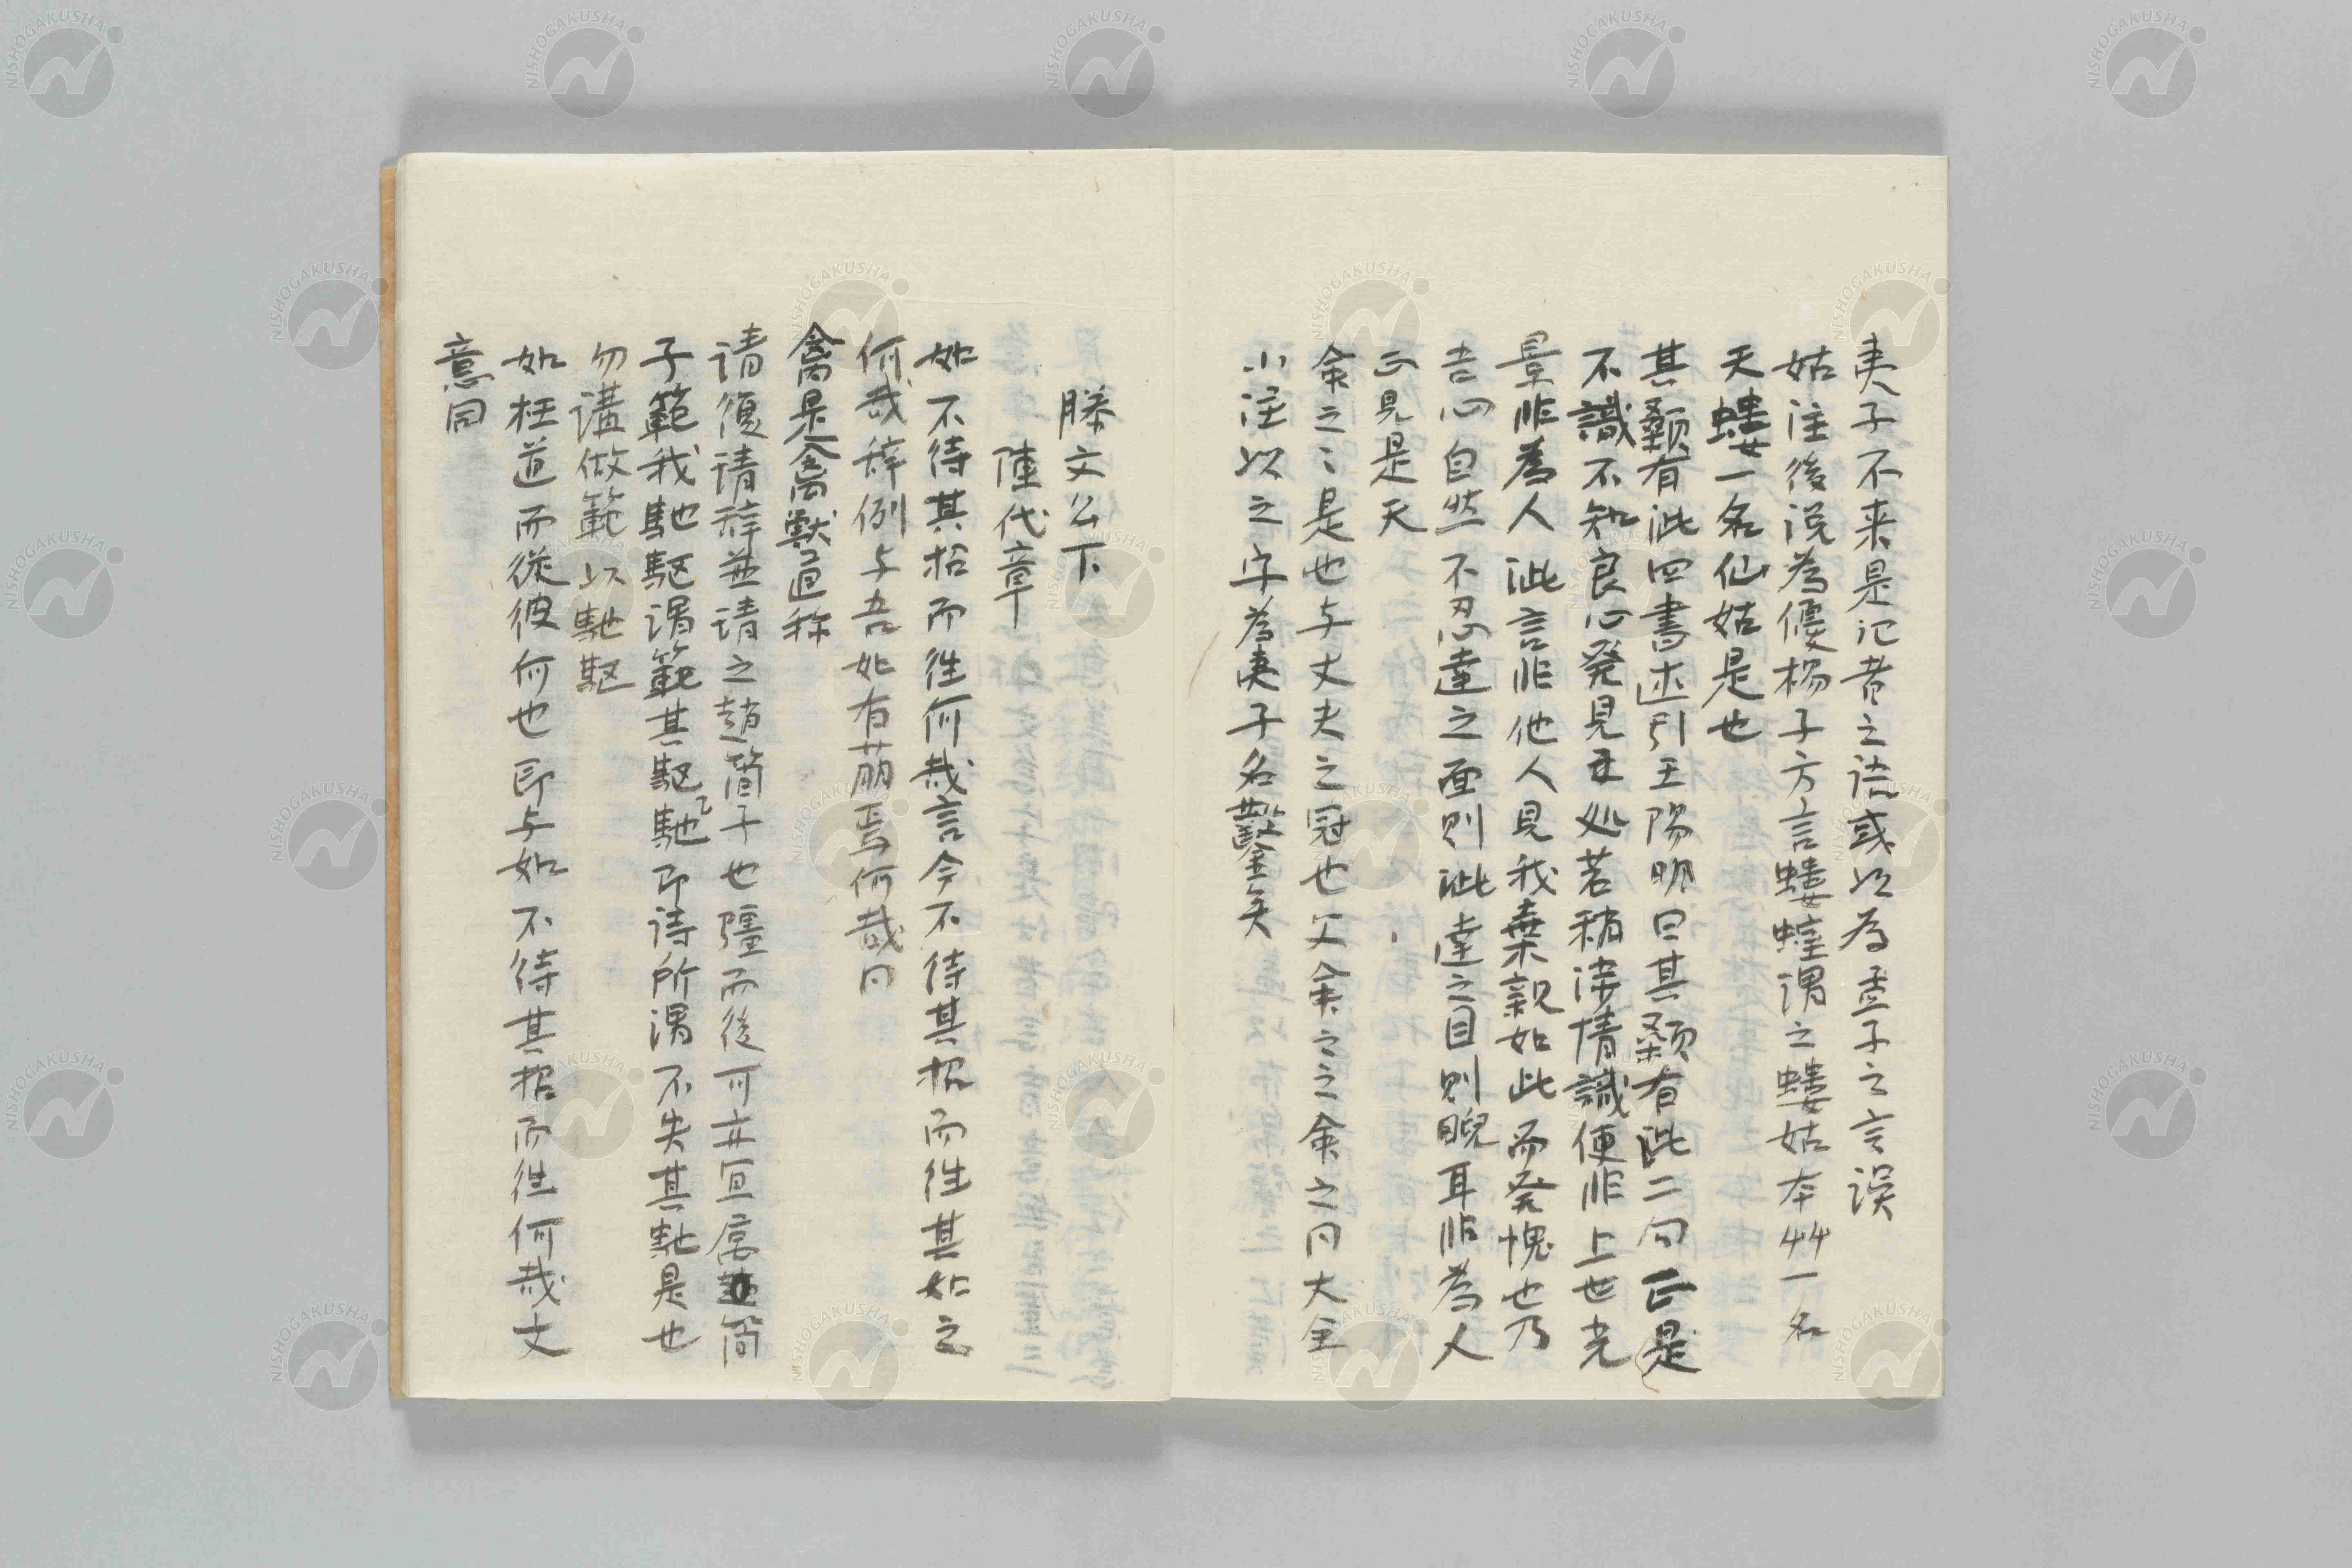 夷子不来是记者之语或以為孟子之言误
姑注後说為優杨子方言螻蛭谓之螻姑本艸一名
天螻一名仙姑是也
其顙有泚四書述引王陽明曰其顙有泚二句正是
不識不知良心発見出处若稍渉情識便非上世光
景非為人泚言非他人見我棄親如此而発愧也乃
吾心自然不忍達之面則泚達之目則睨耳非為人
正見是天
命之〻是也与丈夫之冠也父命之之命之同大全
小注以之字為夷子名鑿矣
滕文公下
陳代章
如不待其招而往何哉言今不待其招而往其如之
何哉辞例与吾如有萌焉何哉同
禽是禽獣通称
请復请辞並请之趙简子也彊而後可亦宜属简
子範我馳駆谓範其駆馳即诗所谓不失其馳是也
勿講做範以馳駆
如枉道而従彼何也即与如不待其招而往何哉文
意同
NISHOGAKUSHA